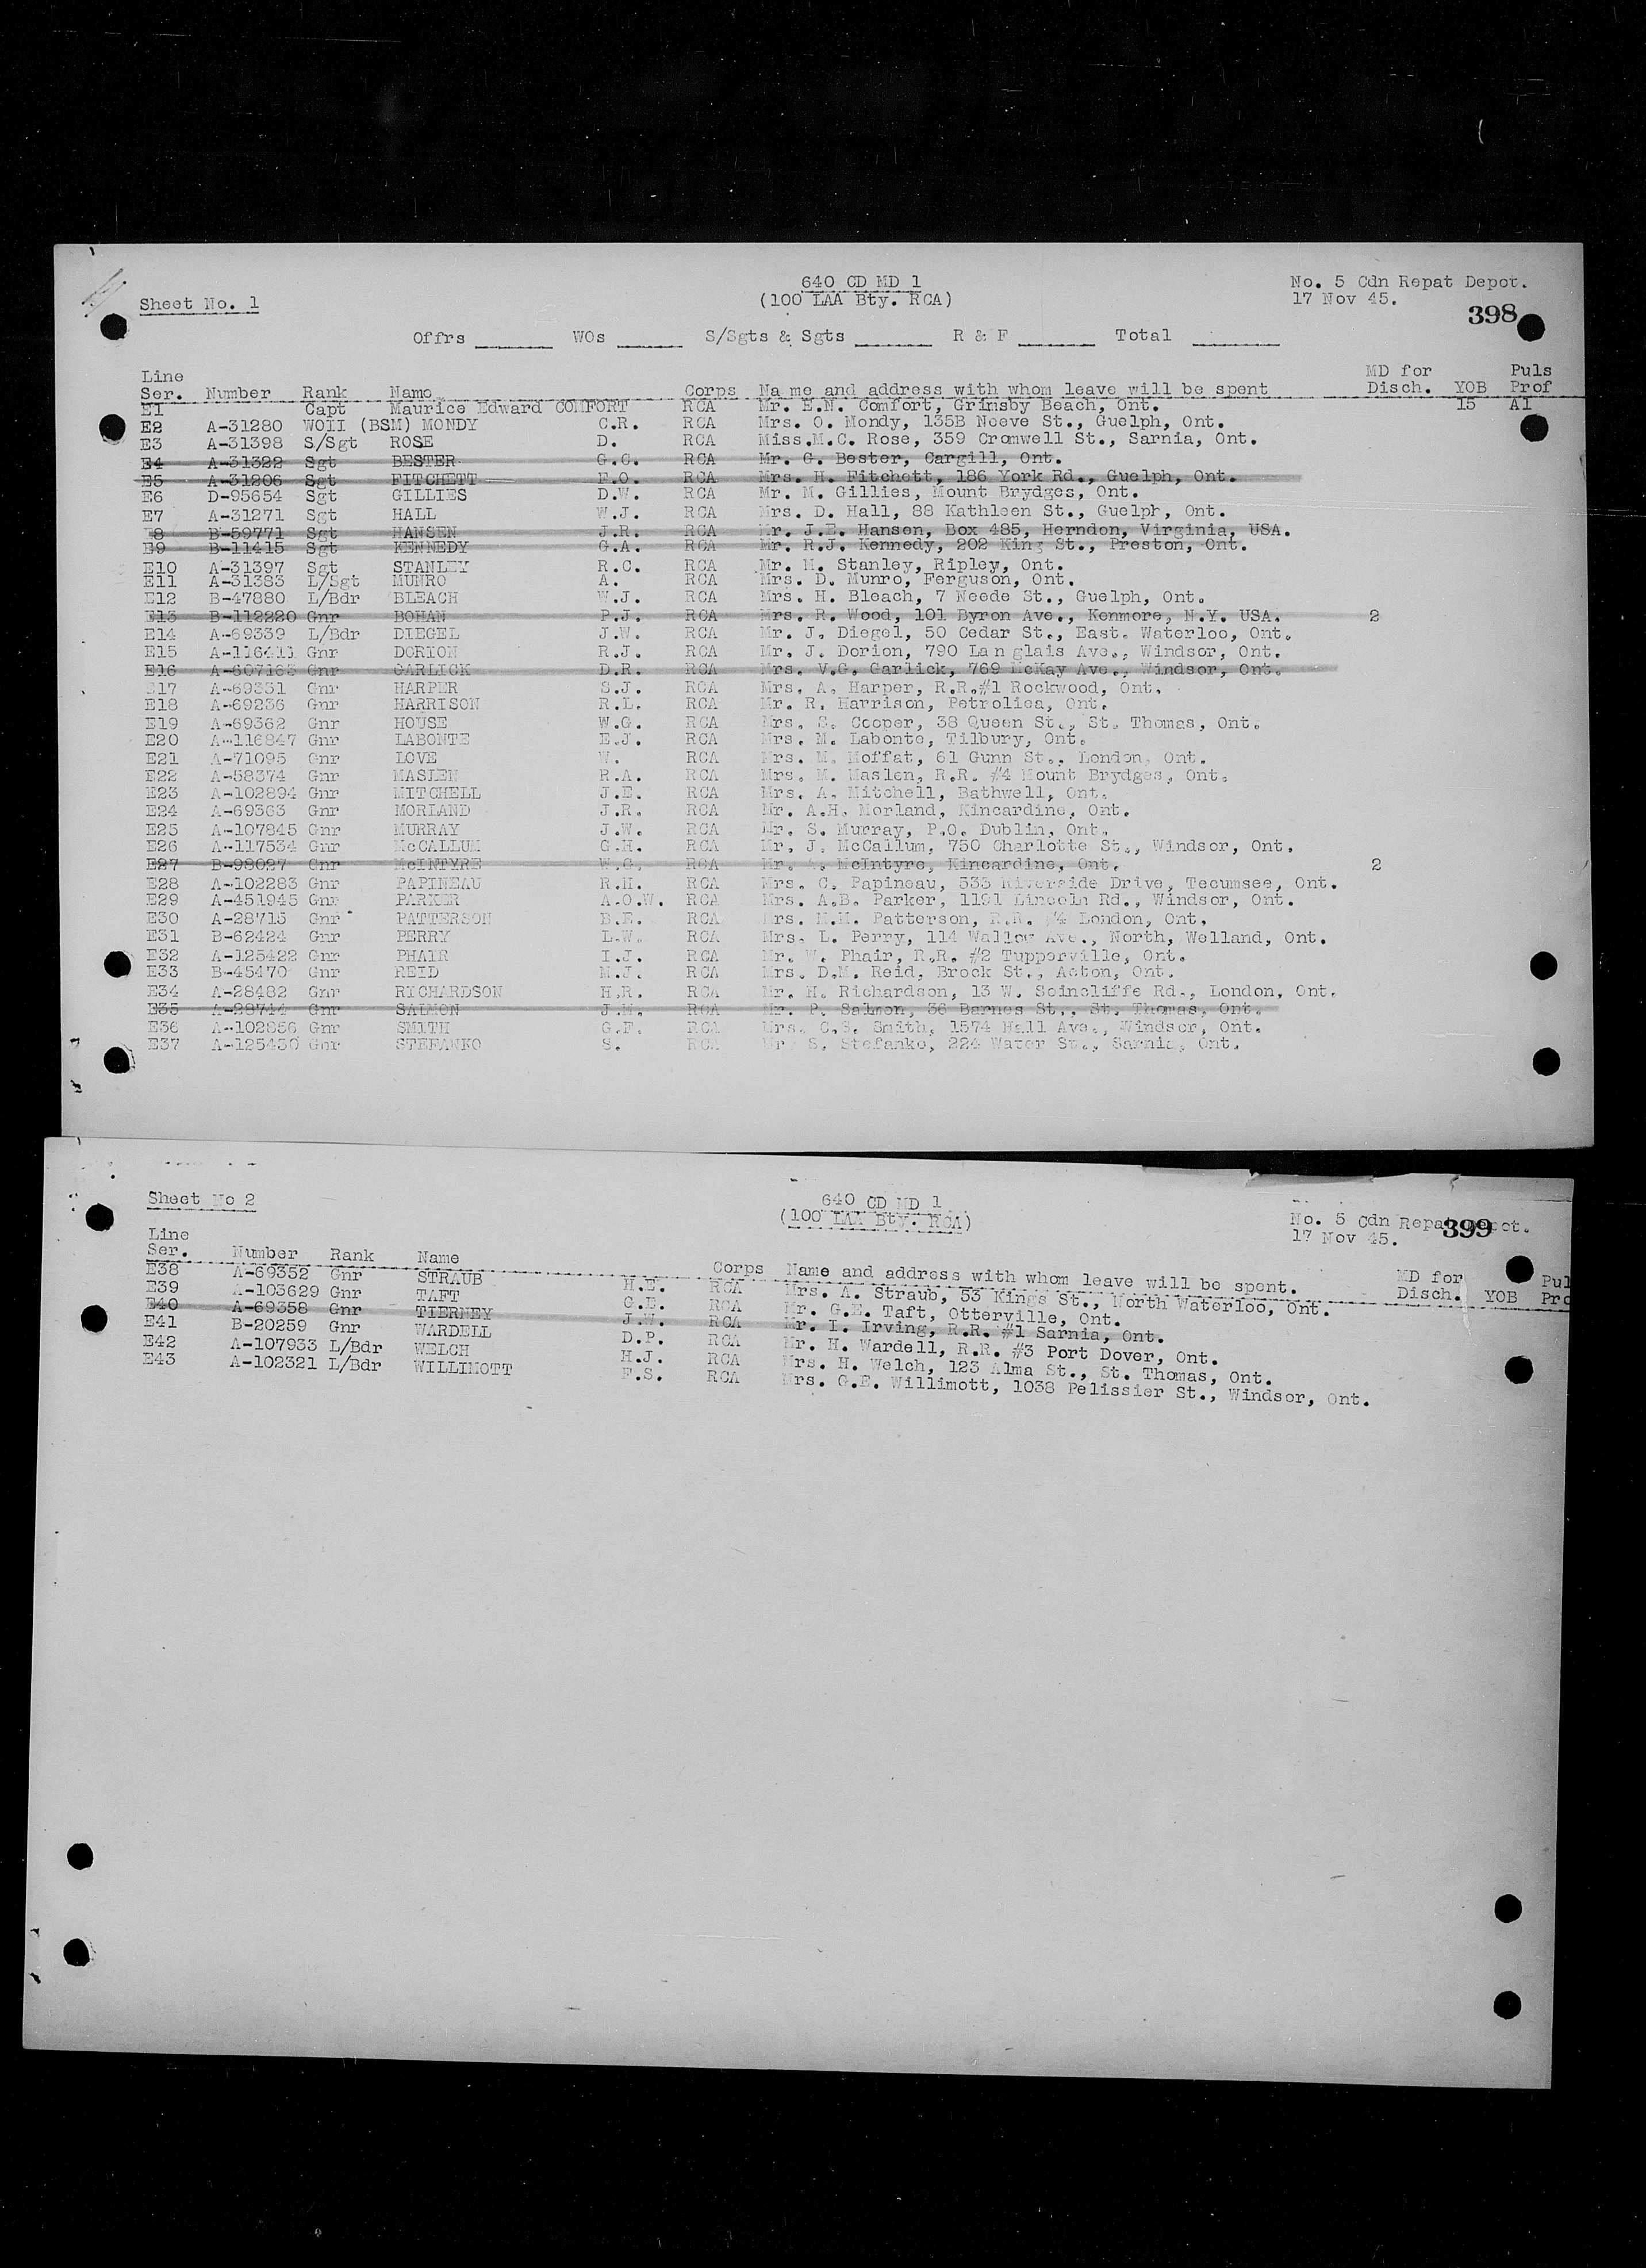 640 CD MD 1
No. 5 Cdn Repat Depot.
Sheet No. 1
(100 LAA Bty. RCA)
17 Nov 45.
398
Offrs ______ WOs _____ S/Sgts & Sgts ______ R & F ______ Total ______
Line MD for Puls
Ser. Number Rank Name Corps Na me and address with whom leave will be spent Disch. YOB Prof
E1 Capt Maurice Edward COMFORT RCA Mr. E.N. Comfort, Grimsby Beach, Ont. 15 A1
E2 A-31280 WOII (BSM) MONDY C.R. RCA Mrs. O. Mondy, 135B Neeve St., Guelph, Ont.
E3 A-31398 S/Sgt ROSE D. RCA Miss.M.C. Rose, 359 Cromwell St., Sarnia, Ont.
E4 A-31322 Sgt BESTER G.C. RCA Mr. G. Bester, Cargill, Ont.
E5 A-31206 Sgt FITCHETT F.O. RCA Mrs. H. Fitchett, 186 York Rd., Guelph, Ont.
E6 D-95654 Sgt GILLIES D.W. RCA Mr. M. Gillies, Mount Brydges, Ont.
E7 A-31271 Sgt HALL W.J. RCA Mrs. D. Hall, 88 Kathleen St., Guelph, Ont.
E8 B-59771 Sgt HANSEN J.R. RCA Mr. J.E. Hansen, Box 485, Herndon, Virginia, USA.
E9 B-11415 Sgt KENNEDY G.A. RCA Mr. R.J. Kennedy, 202 King St., Preston, Ont.
E10 A-31397 Sgt STANLEY R.C. RCA Mr. M. Stanley, Ripley, Ont.
E11 A-31383 L/Sgt MUNRO A. RCA Mrs. D. Munro, Ferguson, Ont.
E12 B-47880 L/Bdr BLEACH W.J. RCA Mrs. H. Bleach, 7 Neede St., Guelph, Ont.
E13 B-112220 Gnr BOHAN P.J. RCA Mrs. R. Wood, 101 Byron Ave., Kenmore, N.Y. USA. 2
E14 A-69339 L/Bdr DIEGEL J.W. RCA Mr. J. Diegel, 50 Cedar St., East. Waterloo, Ont.
E15 A-116411 Gnr DORION R.J. RCA Mr. J. Dorion, 790 Lan glais Ave., Windsor, Ont.
E16 A-607165 Gnr GARLICK D.R. RCA Mrs. V.G. Garlick, 769 McKay Ave., Windsor, Ont.
E17 A-69331 Gnr HARPER S.J. RCA Mrs. A. Harper, R.R.#1 Rockwood, Ont.
E18 A-69236 Gnr HARRISON R.L. RCA Mr. R. Harrison, Petrolica, Ont.
E19 A-69362 Gnr HOUSE W.G. RCA Mrs. S. Cooper, 38 Queen St., St. Thomas, Ont.
E20 A-116847 Gnr LABONTE E.J. RCA Mrs. M. Labonte, Tilbury, Ont.
E21 A-71095 Gnr LOVE W. RCA Mrs. M. Moffat, 61 Gunn St., London, Ont.
E22 A-58374 Gnr MASLEN R.A. RCA Mrs. M. Maslen, R.R. #4 Mount Brydges, Ont.
E23 A-102894 Gnr MITCHELL J.E. RCA Mrs. A. Mitchell, Bathwell, Ont.
E24 A-69363 Gnr MORLAND J.R. RCA Mr. A.H. Morland, Kincardine, Ont.
E25 A-107845 Gnr MURRAY J.W. RCA Mr. S. Murray, P.O. Dublin, Ont.
E26 A-117534 Gnr McCALLUM G.H. RCA Mr. J. McCallum, 750 Charlotte St., Windsor, Ont.
E27 B-98027 Gnr McINTYRE W.G. RCA Mr. McIntyre, Kincardine, Ont. 2
E28 A-102283 Gnr PAPINEAU R.H. RCA Mrs. C. Papineau, 533 Riverside Drive, Tecumsee, Ont.
E29 A-451945 Gnr PARKER A.O.W. RCA Mrs. A.B. Parker, 1191 Lincoln Rd., Windsor, Ont.
E30 A-28715 Gnr PATTERSON B.E. RCA Mrs. M.M. Patterson, R.R. #4 London, Ont.
E31 B-62424 Gnr PERRY L.W. RCA Mrs. L. Perry, 114 Ave., North, Welland, Ont.
E32 A-125422 Gnr PHAIR I.J. RCA Mr. W. Phair, R.R. #2 Tupperville, Ont.
E33 B-45470 Gnr REID M.J. RCA Mrs. D.M. Reid, Brock St., Acton, Ont.
E34 A-28482 Gnr RICHARDSON H.R. RCA Mr. H. Richardson, 13 W. Soincliffe Rd., London, Ont.
E35 A-28744 Gnr SALMON J.M. RCA Mr. P. Salmon, 36 Barnes St., St. Thomas, Ont.
E36 A-102856 Gnr SMITH G.F. RCA Mrs. C.S. Smith, 1574 Hall Ave., Windsor, Ont.
E37 A-125430 Gnr STEFANKO S. RCA Mr S. Stefanko, 224 Water St., Sarnia, Ont.
Sheet No 2
640 CD MD 1
(100 LAA Bty. RCA)
No. 5 Cdn Repat Depot.
17 Nov 45.
399
Line MD for Pul
Ser. Number Rank Name Corps Name and address with whom leave will be spent. Disch. YOB Pro
E38 A-69352 Gnr STRAUB H.E. RCA Mrs. A. Straub, 53 Kings St., North Waterloo, Ont.
E39 A-103629 Gnr TAFT C.E. RCA Mr. G.E. Taft, Otterville, Ont.
E40 A-69358 Gnr TIERNEY J.W. RCA Mr. I. Irving, R.R. #1 Sarnia, Ont.
E41 B-20259 Gnr WARDELL D.P. RCA Mr. H. Wardell, R.R. #3 Port Dover, Ont.
E42 A-107933 L/Bdr WELCH H.J. RCA Mrs. H. Welch, 123 Alma St., St. Thomas, Ont.
E43 A-102321 L/Bdr WILLIMOTT F.S. RCA Mrs. G.E. Willimott, 1038 Pelissier St., Windsor, Ont.